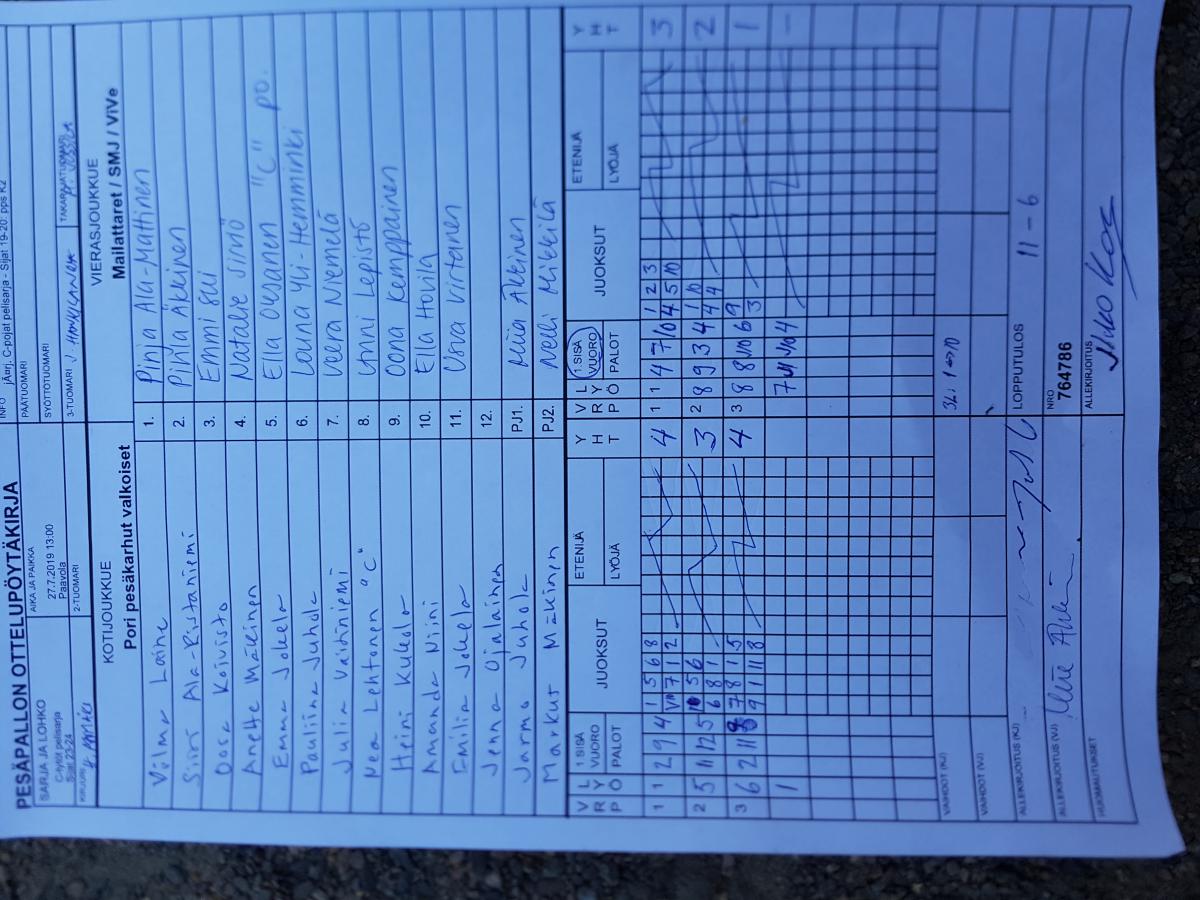 PESÄPALLON OTTELUPÖYTÄKIRJA
INFO jÄurj. C-pojat pelisarja - Sijat 19-20: pps K2
SARJA JA LOHKO
C-tytöt pelisarja
Sijat 23-24
AIKA JA PAIKKA
27.7.2019 13:00
Paavola
PÄÄTUOMARI
SYÖTTÖTUOMARI
KIRJURI
2-TUOMARI
3-TUOMARI
TAKARAJATUOMARI
KOTIJOUKKUE
Pori pesäkarhut valkoiset
VIERASJOUKKUE
Mailattaret / SMJ / ViVe
Vilma Laine 1. Pinja Ala-Mattinen
Siiri Ala-Ristaniemi 2. Pihla Äkkinen
Oosa Koivisto 3. Emmi Sui
Anette Mäkinen 4. Natalie Simiö
Emma Jokela 5. Ella Ovesanen "C" po.
Pauliina Juhola 6. Launa Yli-Hemminki
Julia Vaithiniemi 7. Veera Niemelä
Nea Lehtonen "C" 8. Anni Lepistö
Heini Kukola 9. Oona Kemppainen
Amanda Niini 10. Ella Hovila
Emilia Jokela 11. Virtanen
Jenna Ojalainen 12.
Jarmo Juhola PJ1. Miia Äkkinen
Markut Mäkinen PJ2. Nelli Mikkilä
V R P L Y Ö 1.SISÄ VUORO PALOT JUOKSUT ETENIJÄ LYÖJÄ Y H T V R P L Y Ö 1.SISÄ VUORO PALOT JUOKSUT ETENIJÄ LYÖJÄ Y H T
1 1 2 9 4 1 5 6 8 4 1 1 4 7 10 1 2 3 3
7 1 2 4 5 10
2 5 11 12 5 10 5 6 3 2 8 9 3 4 1 10 2
6 8 1 4 4
3 6 2 11 8 7 8 1 5 4 3 8 8 10 6 9 1
9 1 11 8 3
1 7 4 10 4 -
VAIHDOT (KJ)
VAIHDOT (VJ)
ALLEKIRJOITUS (KJ)
LOPPUTULOS 11 - 6
ALLEKIRJOITUS (VJ)
NRO
764786
HUOMAUTUKSET
ALLEKIRJOITUS